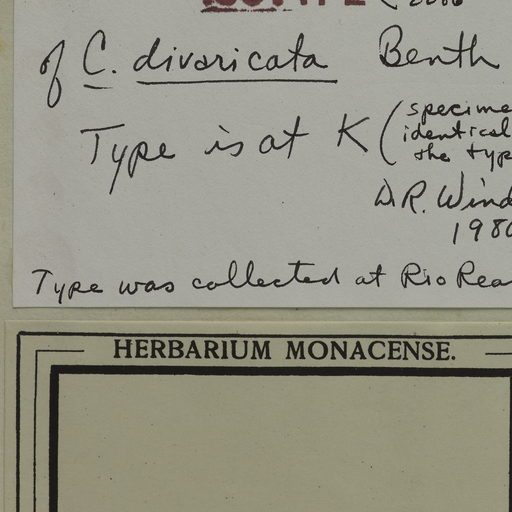 of C. divaricata Benth
Type is at K (specime
identical
the typ
D.R. Wind
198
Type was collected at Rio Rea
HERBARIUM MONACENSE.